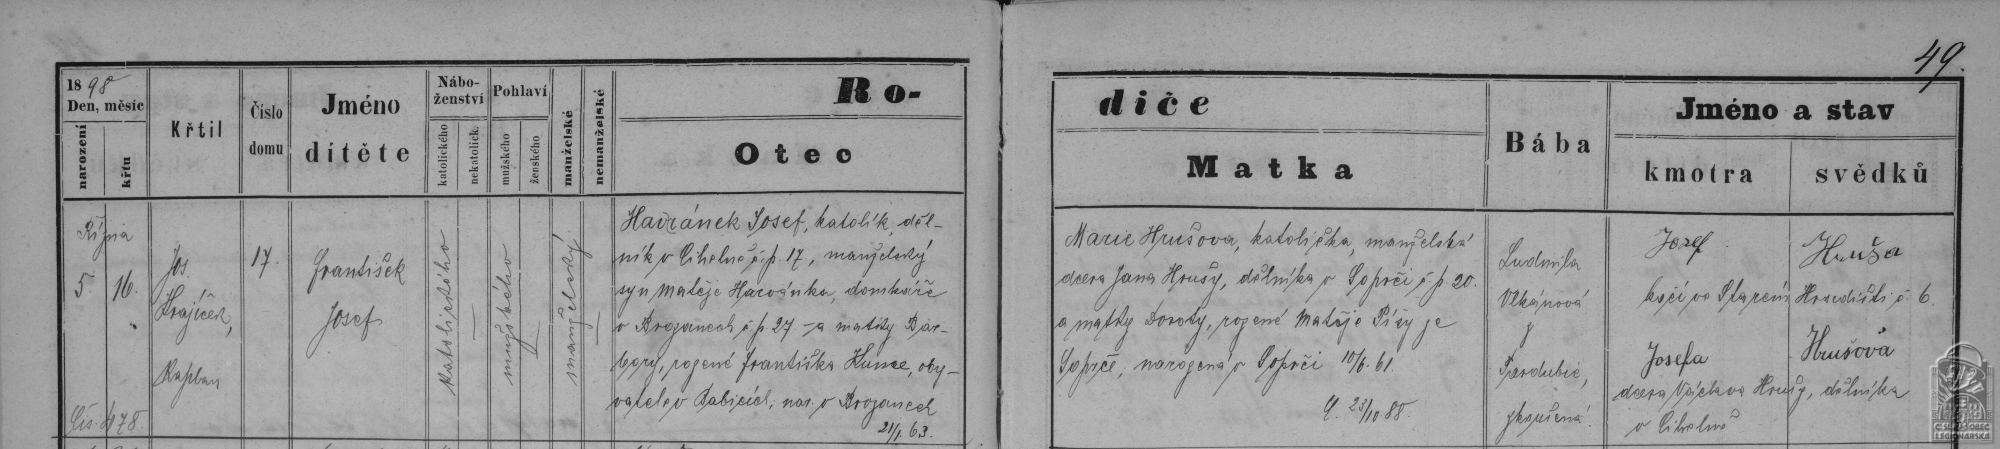 49.
1898
Den, měsíc
narození
křtu
Křtil
Číslo
domu
Jméno
dítěte
Nábo-
ženství
katolického
nekatolick.
Pohlaví
mužského
ženského
manželské
nemanželské
Ro-
Otec
diče
Matka
Bába
Jméno a stav
kmotra
svědků
Října
5.
16.
Čís. 478.
Jos.
Krajíček,
Kaplan
17.
František
Josef
katolického
mužského
manželský
Havránek Josef, katolík, děl-
ník v Cihelně č. p. 17, manželský
syn Matěje Havránka, domkáře
v Brozanech č. p. 27 a matky Bar-
bory, rozené Františka Kunce, oby-
vatele v Babicích, nar. v Brozanech
21/1. 63.
Marie Hrušova, katolička, manželská
dcera Jana Hrušy, dělníka v Soprči č. p. 20.
a matky Doroty, rozené Matěje Píšy ze
Soprče, narozená v Soprči 10/6. 61.
23/10 88.
Ludmila
Vlkánová
z
Pardubic,
zkoušená.
Josef
Hruša
ve Starém Hradišti č. 6.
Josefa
Hrušová
dcera Václava Hrušy, dělníka
v Cihelně
ČESKOSLOVENSKÁ OBEC
LEGIONÁŘSKÁ